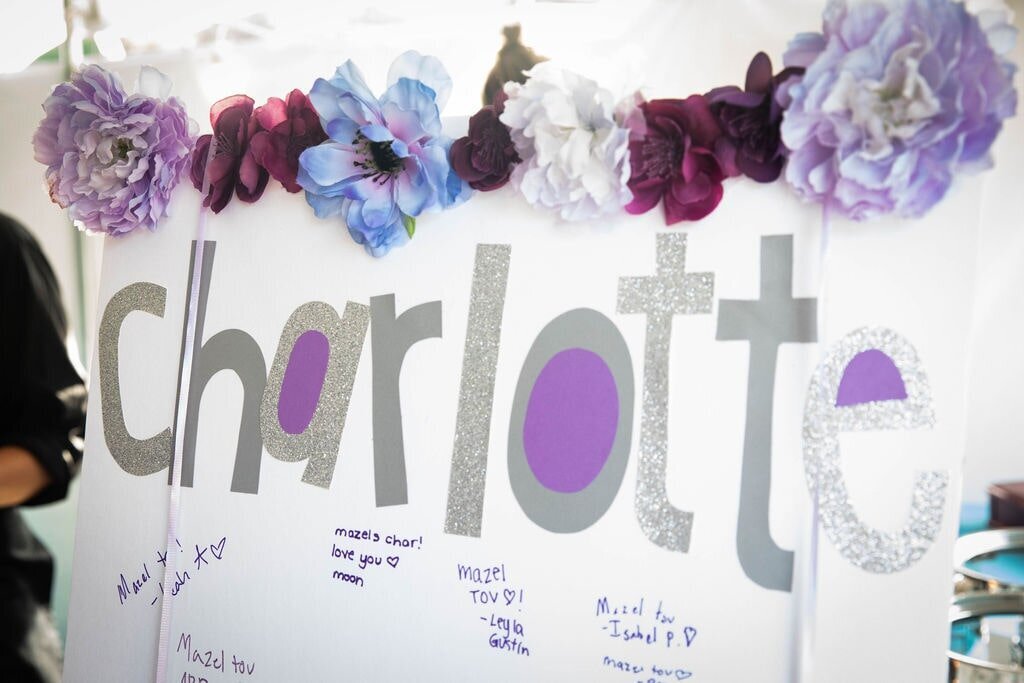 charlotte
Mazel to!
-Leah
mazels char!
love you ♡
moon
Mazel
TOV♡!
-Leyla
Gustin
Mazel tov
-Isabel P.♡
Mazel tov
mazel tov♡